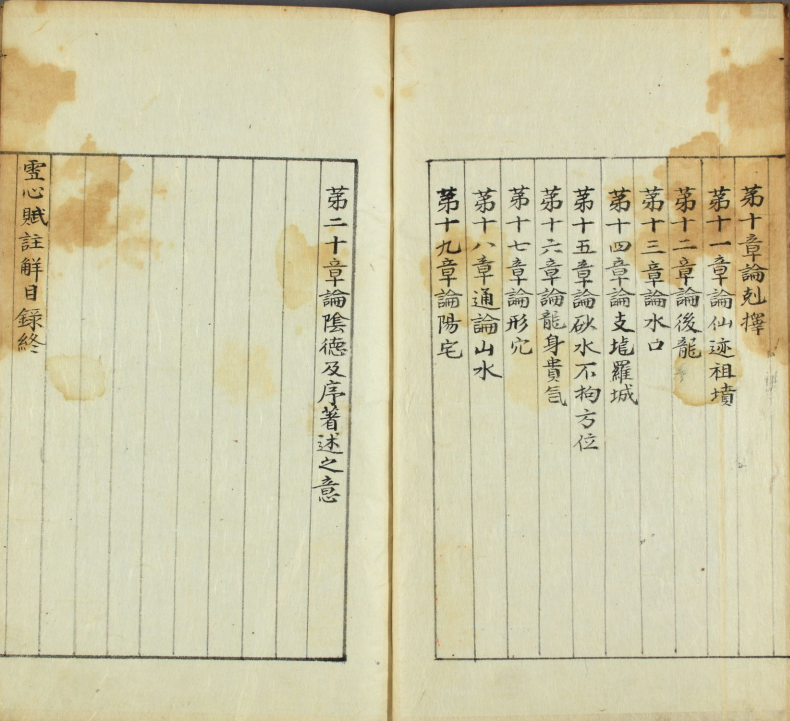 苐十章論剋擇
苐十一章論仙迹祖墳
苐十二章論後龍
苐十三章論水口
苐十四章論支壠羅城
苐十五章論砂水不拘方位
苐十六章論龍身貴氣
苐十七章論形穴
苐十八章通論山水
苐十九章論陽宅
苐二十章論陰德及序著述之意
霊心賦註解目錄終